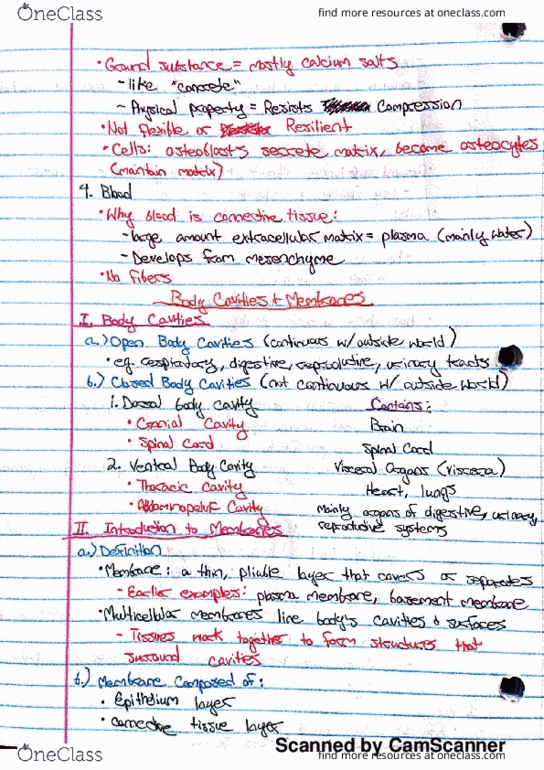 OneClass
find more resources at oneclass.com
• Ground substance = mostly calcium salts
- like "concrete"
- Physical property = Resists Compression
• Not flexible or Resilient
• Cells: osteoblasts secrete matrix, become osteocytes
(maintain matrix)
4. Blood
• Why blood is connective tissue:
- large amount extracellular matrix = plasma (mainly water)
- Develops from mesenchyme
• No Fibers
Body Cavities + Membranes
I. Body Cavities
a.) Open Body Cavities (continuous w/ outside world)
• eg. respiratory, digestive, reproductive, urinary tracts
b.) Closed Body Cavities (not continuous w/ outside world)
1. Dorsal body cavity Contains:
• Cranial Cavity Brain
• Spinal Cord Spinal Cord
2. Ventral Body Cavity Visceral Organs (viscera)
• Thoracic cavity Heart, lungs
• Abdominopelvic Cavity Mainly organs of digestive, urinary,
reproductive systems
II. Introduction to Membranes
a.) Definition
• Membrane: a thin, pliable layer that covers or separates
- Earlier examples: plasma membrane, basement membrane
• Multicellular membranes line body's cavities & surfaces
- Tissues work together to form structures that
surround cavities
b.) Membrane Composed of:
• Epithelium layer
• connective tissue layer
Scanned by CamScanner
OneClass
find more resources at oneclass.com